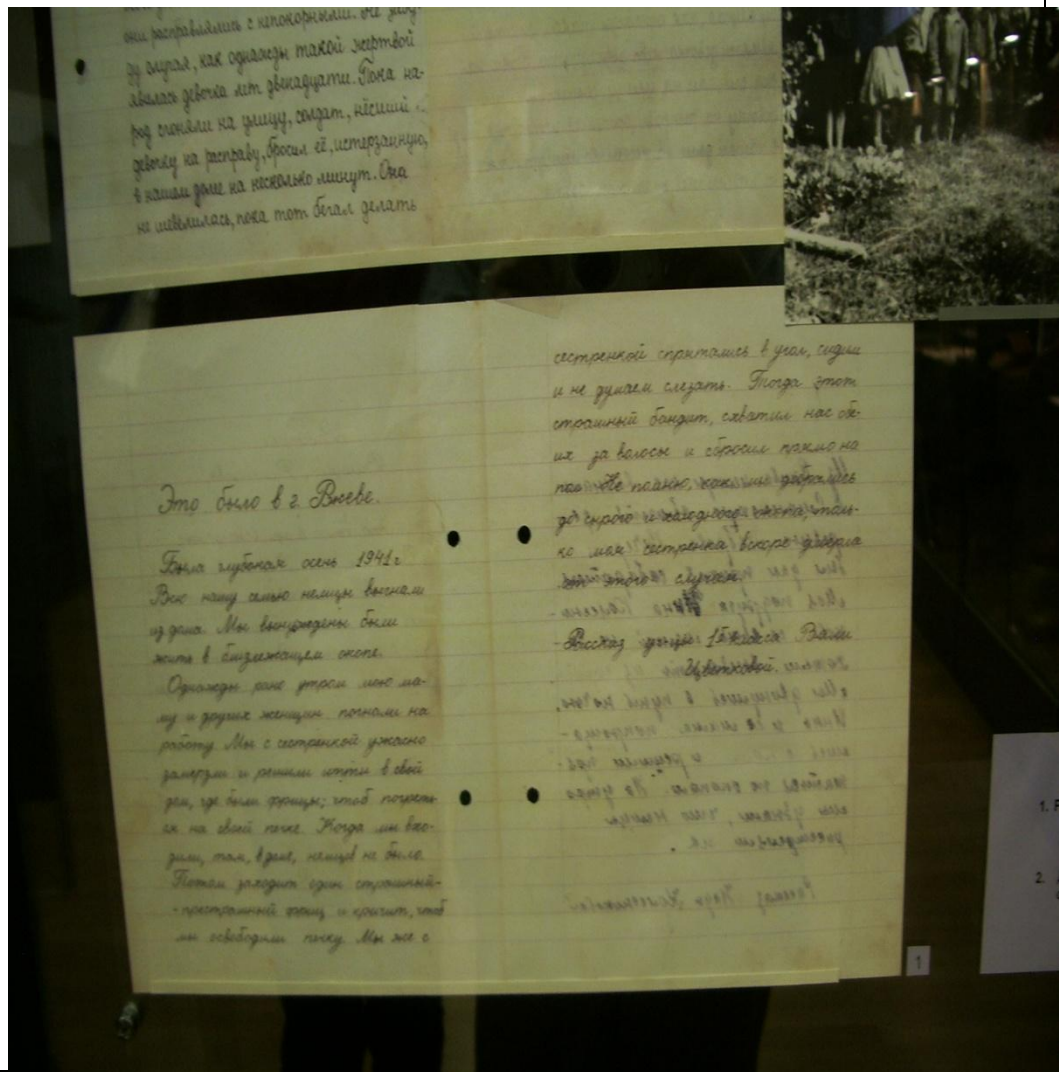 они расправлялись с непокорными. Не забу-
ду случая, как однажды такой жертвой
явилась девочка лет двенадцати. Пока на-
род сгоняли на улицу, солдат, нёсший
девочку на расправу, бросил её, истерзанную,
в нашем доме на несколько минут. Она
не шевелилась, пока тот бегал делать
Это было в г. Ржеве.
Была глубокая осень 1941 г
Всю нашу семью немцы выгнали
из дома. Мы вынуждены были
жить в близлежащем окопе.
Однажды рано утром мою ма-
му и других женщин погнали на
работу. Мы с сестренкой ужасно
замерзли и решили итти в свой
дом, где были фрицы; чтоб погреть-
ся на своей печке. Когда мы вхо-
дили, там, в доме, немцев не было.
Потом заходит один страшный-
-престрашный фриц и кричит, чтоб
мы освободили печку. Мы же с
сестренкой спрятались в угол, сидим
и не думаем слезать. Тогда этот
страшный бандит, схватил нас обе-
их за волосы и сбросил прямо на
пол. Не помню, как мы добрались
до сырого и холодного окопа, толь-
ко моя сестренка вскоре умерла
от этого случая.
Рассказ уч-цы класса Вали
Цветковой.
1
1.
2.